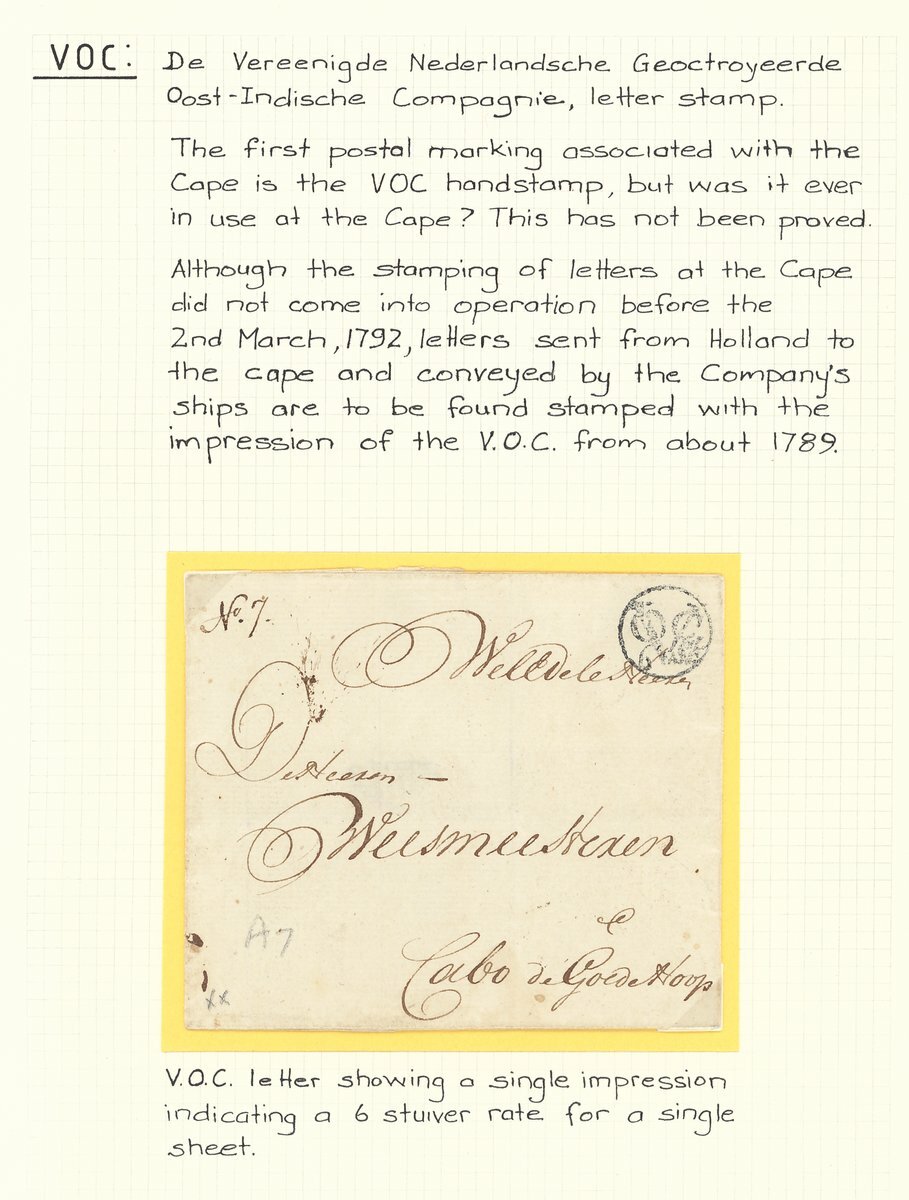 VOC:
De Vereenigde Nederlandsche Geoctroyeerde
Oost-Indische Compagnie, letter stamp.
The first postal marking associated with the
Cape is the VOC handstamp, but was it ever
in use at the Cape? This has not been proved.
Although the stamping of letters at the Cape
did not come into operation before the
2nd March, 1792, letters sent from Holland to
the cape and conveyed by the Company's
ships are to be found stamped with the
impression of the V.O.C. from about 1789.
No. 7.
WelEdele Heeren
De Heeren —
Weesmeesteren
Cabo de Goede Hoop
A7
xx
V.O.C. letter showing a single impression
indicating a 6 stuiver rate for a single
sheet.